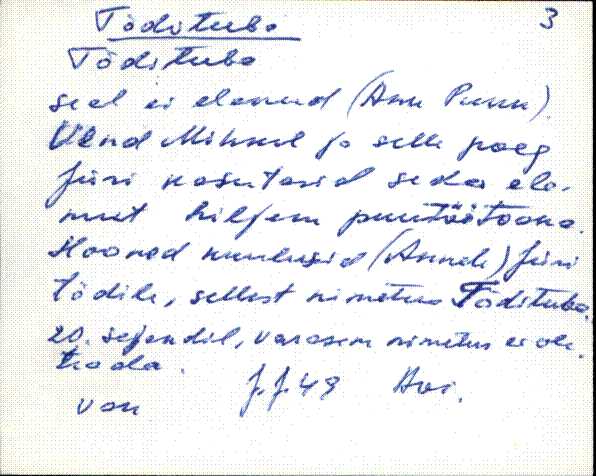 Tädituba 3
Tädituba
seal ei elanud (Ann Punn).
Vend Mihkel ja selle poeg
Jüri kasutasid seda ela-
mut hiljem puutöötoana.
Hooned kuulusid (Annele) Jüri
tädile, sellest nimetus Tädituba.
20. sajandil, varasem nimetus ei ole
teada.
J.J. 49
von